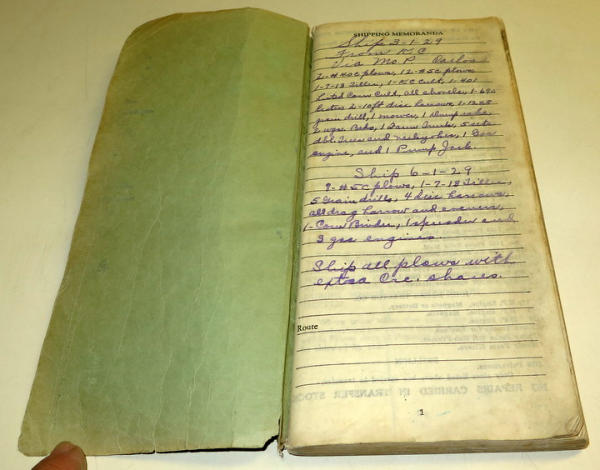 SHIPPING MEMORANDA
Ship 3-1-29
From KC
Via Mo P.
2-#40C plows, 12-#5C plows
1-7-13 Tiller, 1-KC Cult, 1-401
Listed Corn Cult, all shovels, 1-690
Lister 2-10ft disc harrows, 1-12x8
grain drill, 1 mower, 1 Dump rake,
2 wgn. Boxes, 1 Farm Truck, 5 sets
dbl. Trees and neckyokes, 1 Gas
engine, and 1 Pump Jack.
Ship 6-1-29
9-#5C plows, 1-7-13 Tiller,
5 Grain drills, 4 disc harrows,
all drag harrow and eveners,
1-Corn Binder, 1 spreader and
3 gas engines.
Ship all plows with
extra Cru. shares.
Route
NO REPAIRS CARRIED IN TRANSFER STOCK
1